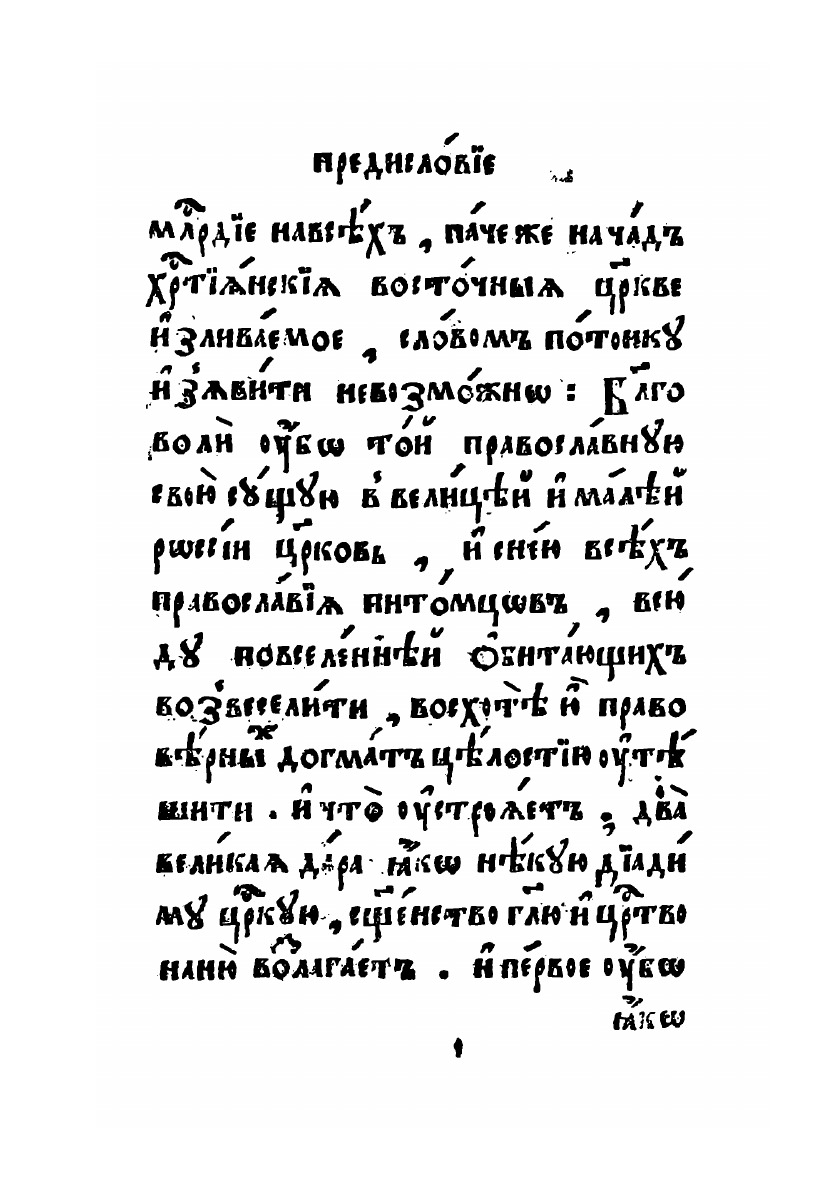 предисло́вїе
мл҇рдїе навсѣ́хъ, па́чеже нача́дъ
хр҇тїѧ́нскїѧ восто́чныѧ цр҃кве
и҆злива́емое, сло́вомъ по́тонкꙋ
и҆зѧви́ти невозмо́жнѡ: Бл҃го
волѝ ᲂу҆́бѡ то́й правосла́внꙋю
свою̀ сꙋ́щꙋю в̾вели́цѣй и҆ма́лѣй
рѡсі́и цр҃ковь, и҆ се́ю всѣ́хъ
правосла́вїѧ пито́мцѡвъ, всю́
дꙋ повселе́ннѣй ѻ҆бита́ющихъ
воз̾весели́ти, восхотѣ̀ и҆ право
вѣ́рныⷯ догма́тъ цѣ́лостїю ᲂу҆тѣ́
шити. и҆ что̀ ᲂу҆строѧ́етъ, два̀
вели́каѧ да́ра ꙗ҆́кѡ нѣ́кꙋю дїади́
мꙋ цр҇кꙋю, сщ҃е́нство гл҃ю и҆ цр҇тво
наню̀ воⷥлага́етъ. и҆ пе́рвое ᲂу҆́бѡ
ꙗ҆́кѡ